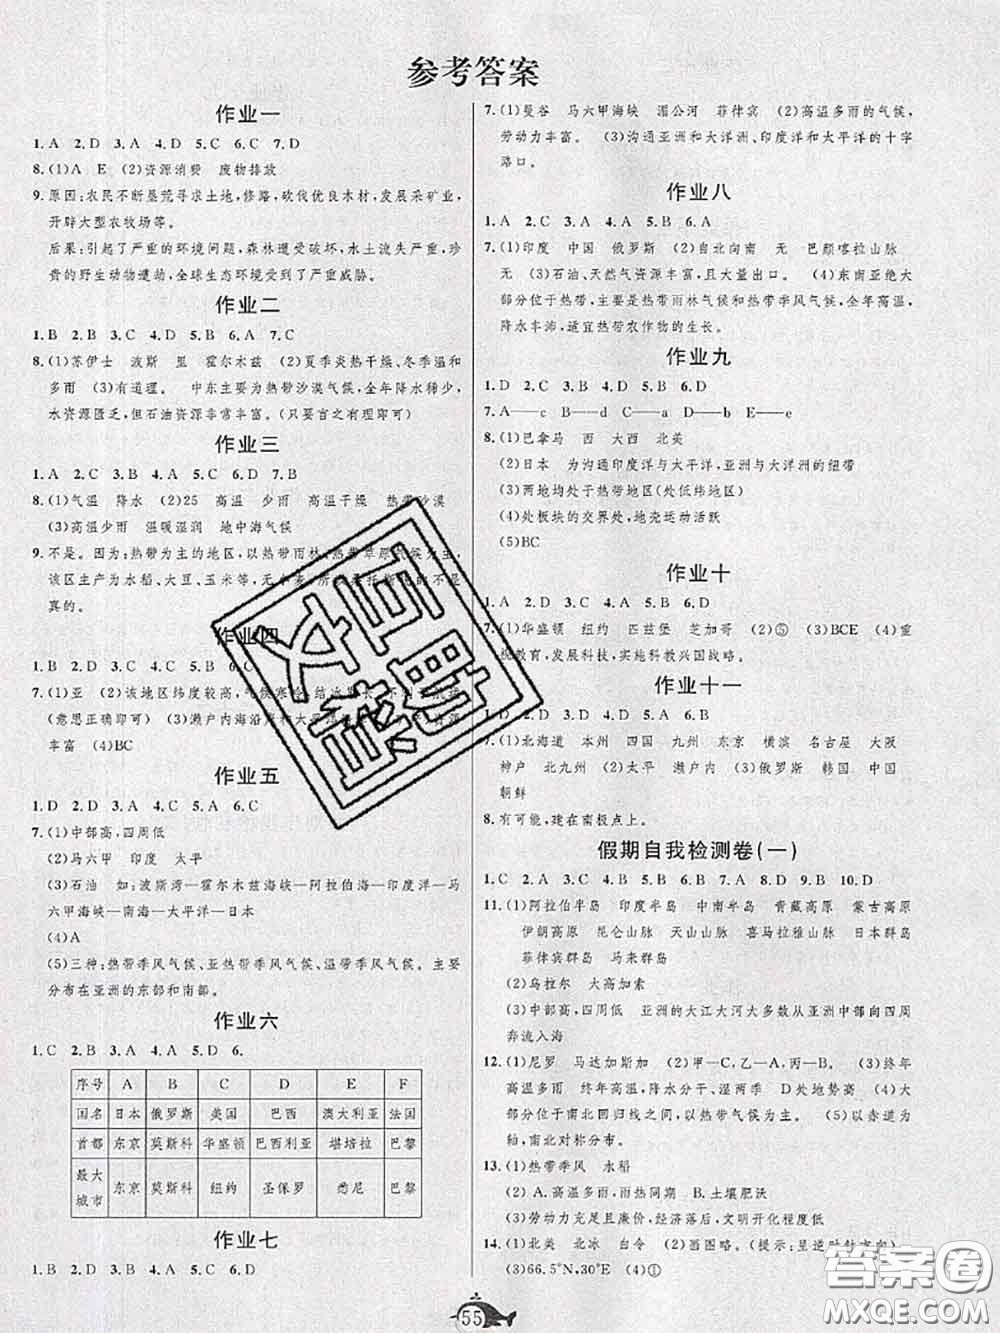 参考答案
作业一
1.A 2.D 3.A 4.D 5.C 6.C 7.D
8.(1)A E (2)资源消费 废物排放
9.原因:农民不断垦荒寻求土地,修路,砍伐优良木材,发展采矿业,
开辟大型农牧场等。
后果:引起了严重的环境问题,森林遭受破坏,水土流失严重,珍
贵的野生动物遭劫,全球生态环境受到了严重威胁。
作业二
1.B 2.B 3.C 4.D 5.B 6.A 7.C
8.(1)苏伊士 波斯 里 霍尔木兹 (2)夏季炎热干燥、冬季温和
多雨 (3)有道理。 中东主要为热带沙漠气候,全年降水稀少,
水资源匮乏,但石油资源非常丰富。(只要言之有理即可)
作业三
1.A 2.C 3.B 4.A 5.C 6.D 7.B
8.(1)气温 降水 (2)25 高温 少雨 高温干燥 热带沙漠
(3)高温少雨 温暖湿润 地中海气候
9.不是。因为:热带为主的地区,以热带雨林、热带草原气候为主,
该区主产为水稻、大豆、玉米等,无小麦,所以
真的。
作业四
1.B 2.B 3.D 4.D 5.C 6.C
7.(1)亚 (2)该地区纬度较高,气候寒冷,结冰期长,不利于航行
(意思正确即可) (3)濑户内海沿岸和太平洋
丰富 (4)BC
作业五
1.D 2.D 3.D 4.A 5.A 6.C
7.(1)中部高,四周低
(2)马六甲 印度 太平
(3)石油 如:波斯湾—霍尔木兹海峡—阿拉伯海—印度洋—马
六甲海峡—南海—太平洋—日本
(4)A
(5)三种:热带季风气候、亚热带季风气候、温带季风气候。主要
分布在亚洲的东部和南部。
作业六
1.C 2.B 3.A 4.A 5.D 6.
序号 A B C D E F
国名 日本 俄罗斯 美国 巴西 澳大利亚 法国
首都 东京 莫斯科 华盛顿 巴西利亚 堪培拉 巴黎
最大城市 东京 莫斯科 纽约 圣保罗 悉尼 巴黎
作业七
1.B 2.D 3.A 4.C 5.A 6.D
7.(1)曼谷 马六甲海峡 湄公河 菲律宾 (2)高温多雨的气候,
劳动力丰富。 (3)沟通亚洲和大洋洲、印度洋和太平洋的十字
路口。
作业八
1.A 2.C 3.A 4.A 5.B 6.A
7.(1)印度 中国 俄罗斯 (2)自北向南 无 巴颜喀拉山脉
无 (3)石油、天然气资源丰富,且大量出口。 (4)东南亚绝大
部分位于热带,主要是热带雨林气候和热带季风气候,全年高温,
降水丰沛,适宜热带农作物的生长。
作业九
1.D 2.C 3.A 4.B 5.B 6.D
7.A——c B——d C——a D——b E——e
8.(1)巴拿马 西 大西 北美
(2)日本 为沟通印度洋与太平洋,亚洲与大洋洲的纽带
(3)两地均处于热带地区(处低纬地区)
(4)处板块的交界处,地壳运动活跃
(5)BC
作业十
1.A 2.D 3.C 4.A 5.B 6.D
7.(1)华盛顿 纽约 匹兹堡 芝加哥 (2)⑤ (3)BCE (4)重
视教育,发展科技,实施科教兴国战略。
作业十一
1.D 2.C 3.D 4.A 5.A 6.B
7.(1)北海道 本州 四国 九州 东京 横滨 名古屋 大阪
神户 北九州 (2)太平 濑户内 (3)俄罗斯 韩国 中国
朝鲜
8.有可能,建在南极点上。
假期自我检测卷(一)
1.C 2.A 3.C 4.B 5.B 6.A 7.A 8.D 9.B 10.D
11.(1)阿拉伯半岛 印度半岛 中南半岛 青藏高原 蒙古高原
伊朗高原 昆仑山脉 天山山脉 喜马拉雅山脉 日本群岛
菲律宾群岛 马来群岛
(2)乌拉尔 大高加索
(3)中部高,四周低 亚洲的大江大河大多数从亚洲中部向四周
奔流入海
12.(1)尼罗 马达加斯加 (2)甲—C,乙—A,丙—B。 (3)终年
高温多雨 终年高温,降水分干、湿两季 D处地势高 (4)大
部分位于南北回归线之间,以热带气候为主。 (5)以赤道为
轴,南北对称分布。
13.(1)热带季风 水稻
(2) A.高温多雨,雨热同期 B.土壤肥沃
(3)劳动力充足且廉价,经济落后,文明开化程度低
14.(1)北美 北冰 白令 (2)画图略。(提示:呈逆时针方向)
(3)66.5°N,30°E (4)①
55
互助文档
答案圈
MXQE.COM